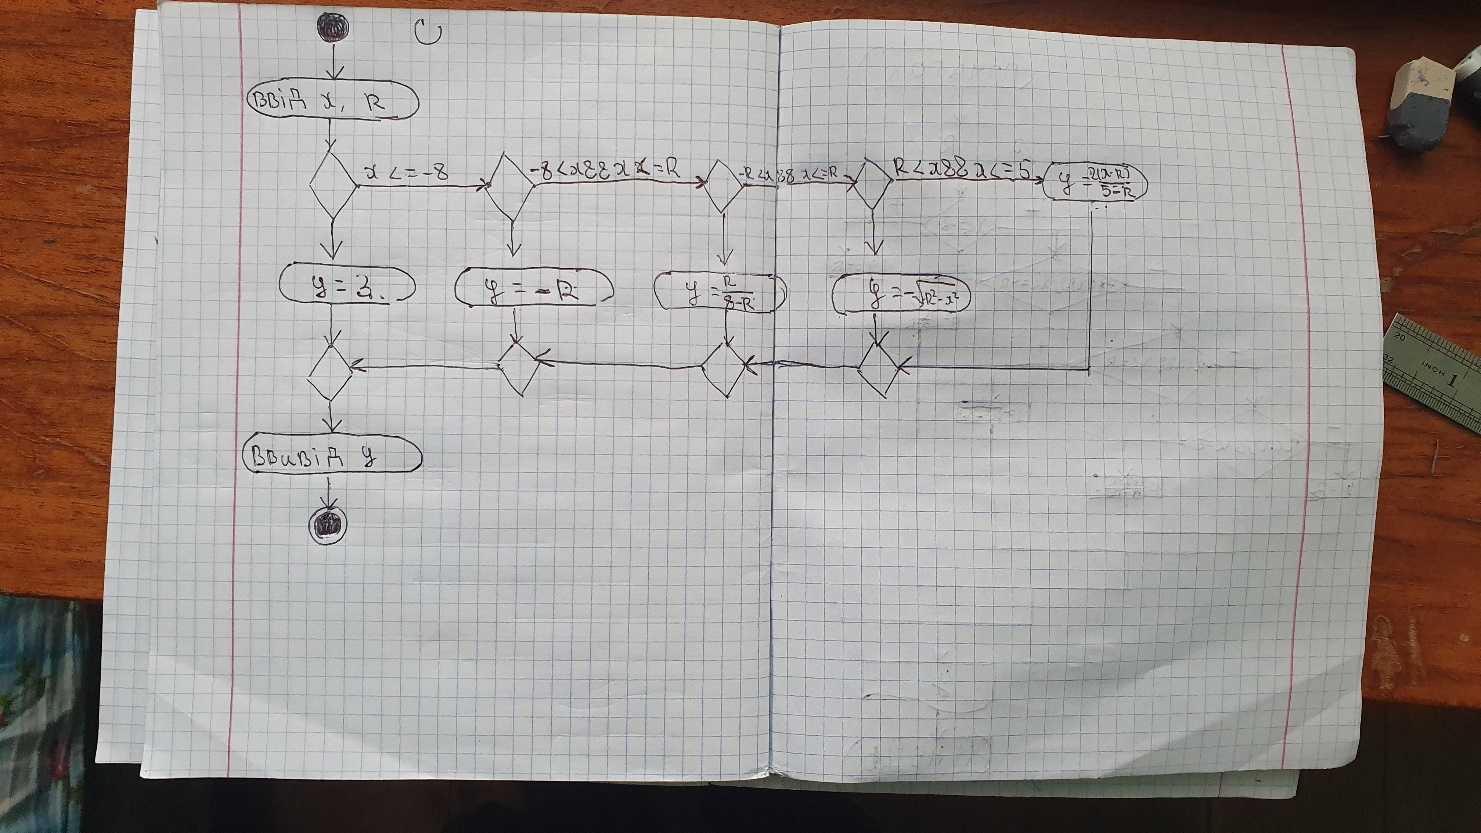 ВВіД x, R
x <= -8
-8<x&&x<=R
-R<x&&x<=R
R<x&&x<=5
y=R(x-R)/5-R
y=3.
y=-R
y=R/8-R
y=-√R²-x²
ВВиВіД y
20
INCH 1